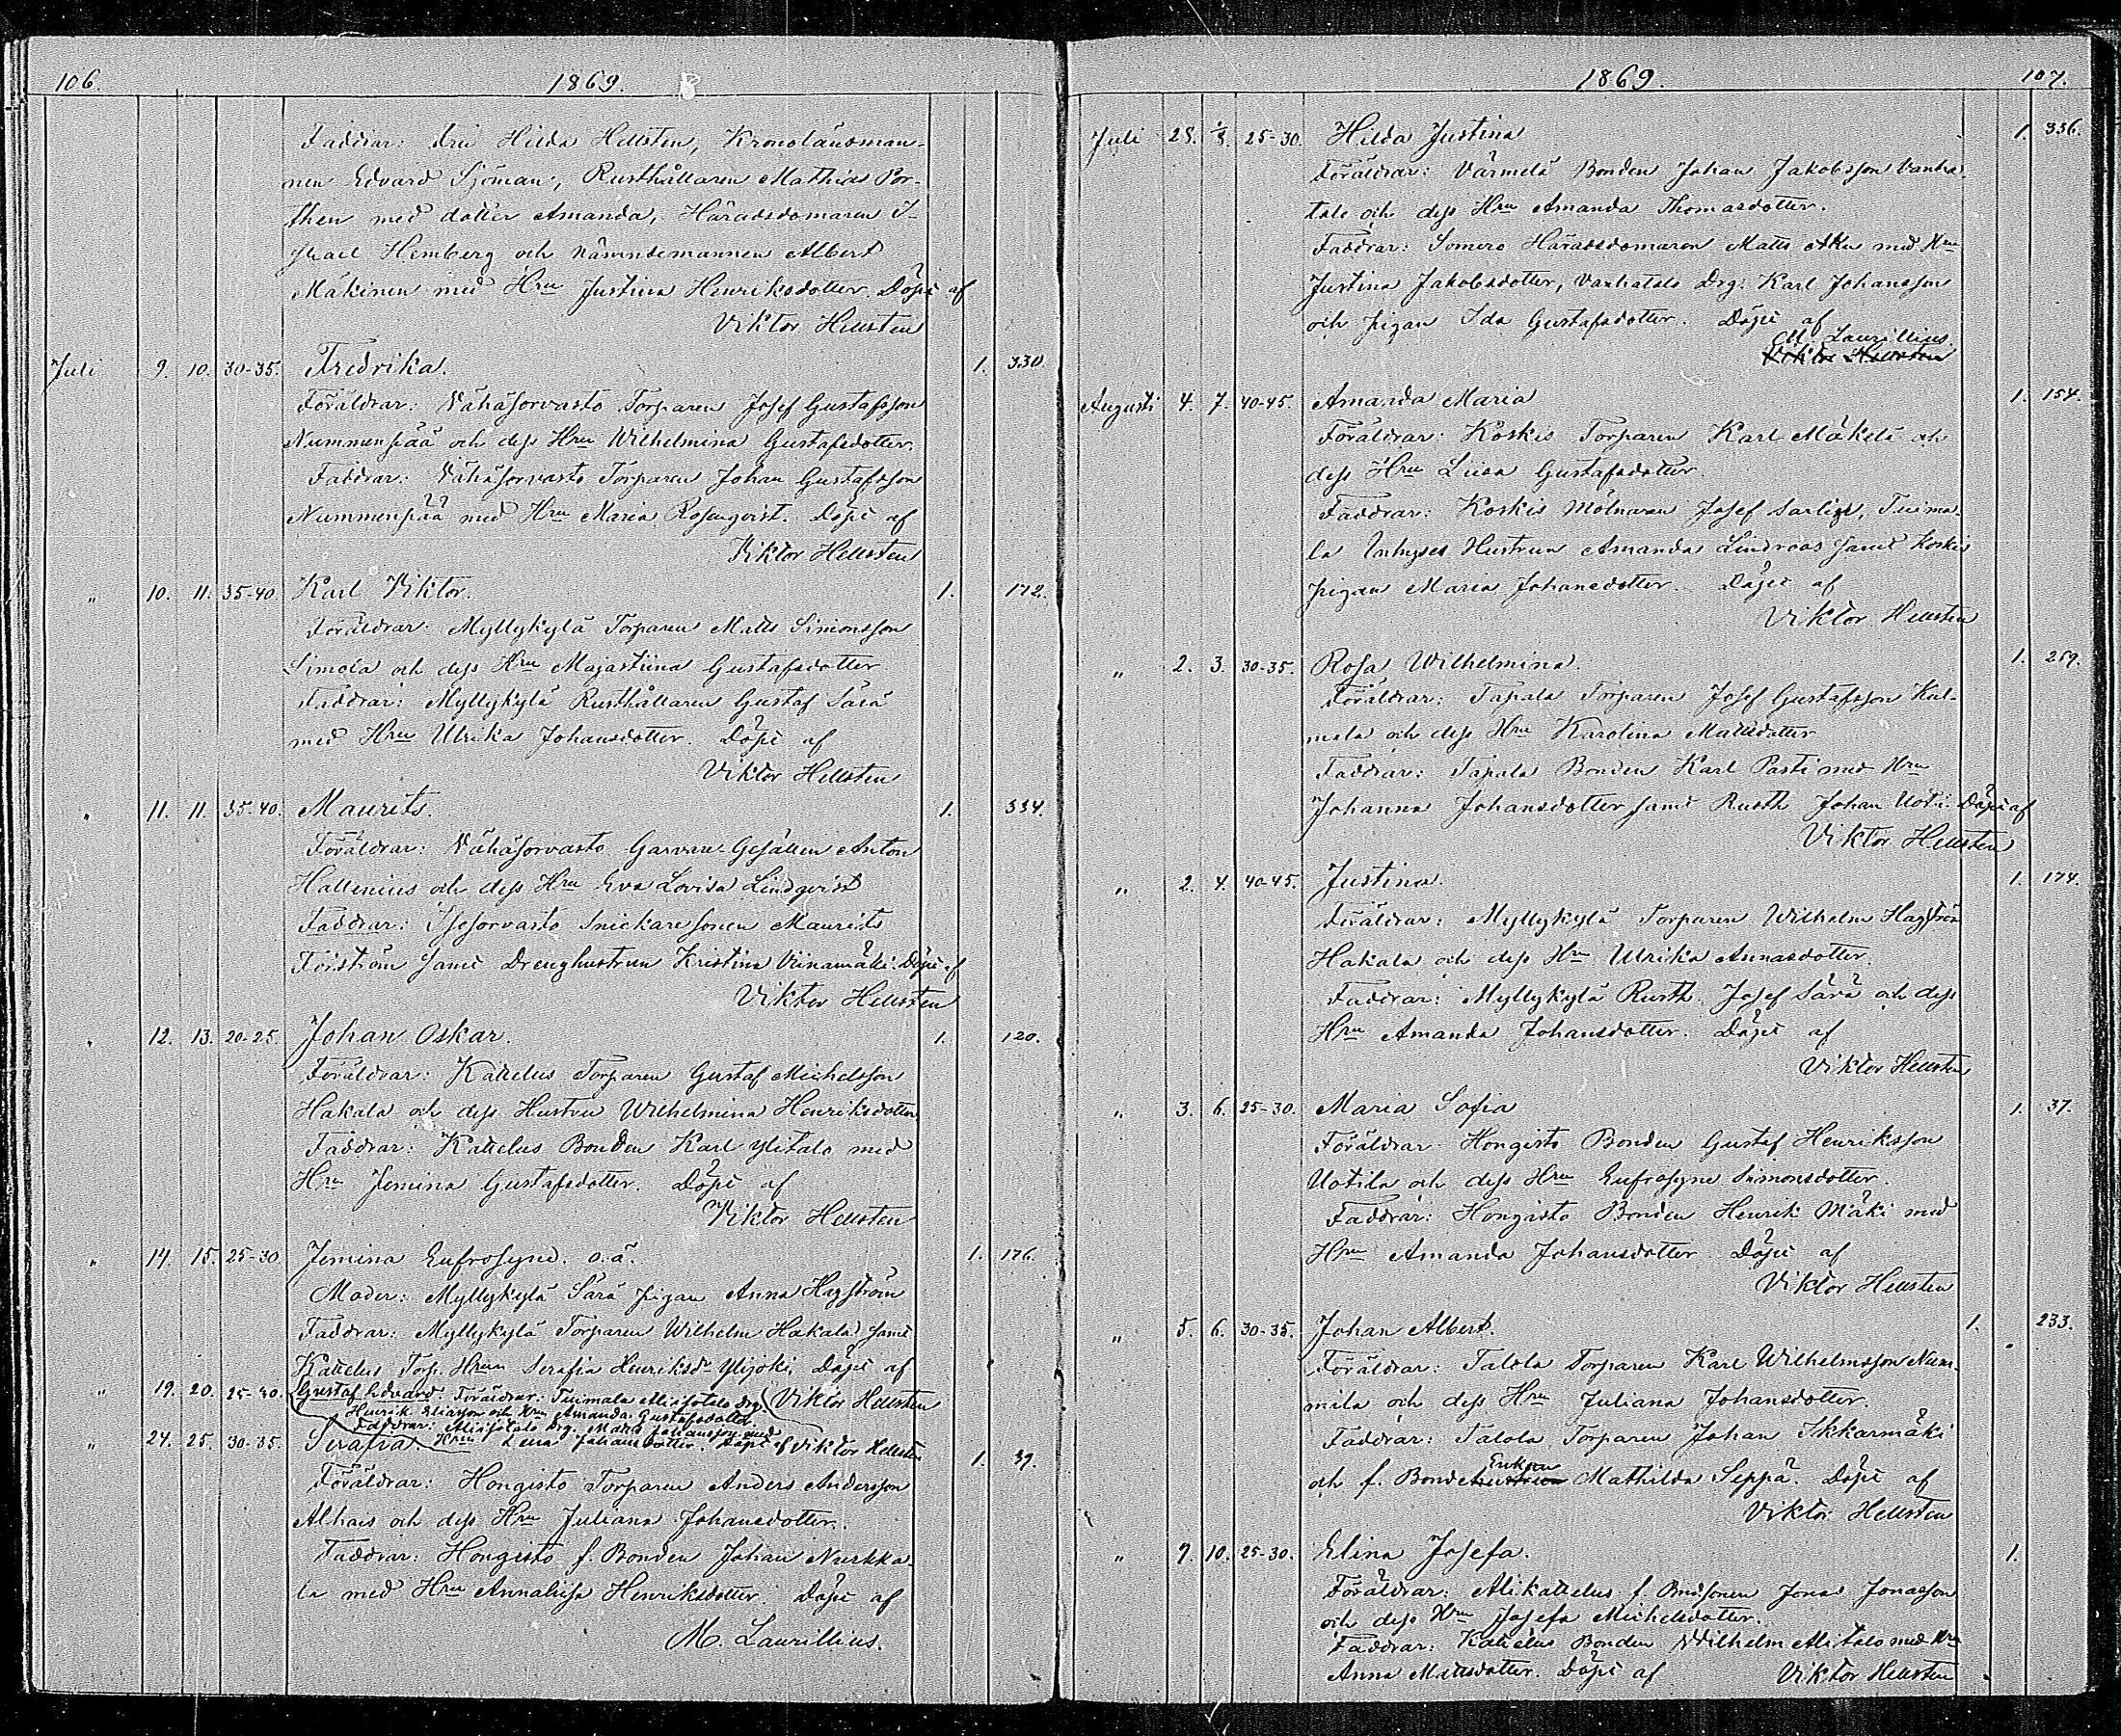 106. 1869.
Faddrar: Hilda Hellsten, Kronolänsman-
nen Edvard Sjöman, Rusthållaren Mathias Por-
then med dotter Amanda, Häradsdomaren I-
srael Hemberg och Nämndemannen Albert
Mäkinen med Hru Justina Henriksdotter. Döpt af
Viktor Hellsten
Juli 9. 10. 30-35. Fredrika. 1. 330.
Föräldrar: Vähäsorvasto Torparen Josef Gustafsson
Nummenpää och dess Hru Wilhelmina Gustafsdotter.
Faddrar: Vähäsorvasto Torparen Johan Gustafsson
Nummenpää med Hru Maria Rosenqvist. Döpt af
Viktor Hellsten
" 10. 11. 35-40. Karl Viktor. 1. 172.
Föräldrar: Myllykylä Torparen Matts Simonsson
Simola och dess Hru Majastiina Gustafsdotter
Faddrar: Myllykylä Rusthållaren Gustaf Särä
med Hru Ulrika Johansdotter. Döpt af
Viktor Hellsten
" 11. 11. 35-40. Maurits. 1. 334.
Föräldrar: Vähäsorvasto Garvare-Gesällen Anton
Hallenius och dess Hru Eva Lovisa Lindqvist
Faddrar: Isosorvasto Snickaresonen Maurits
Forström samt Drenghustrun Kristina Viinamäki. Döpt af
Viktor Hellsten
" 12. 13. 20-25. Johan Oskar. 1. 120.
Föräldrar: Kattelus Torparen Gustaf Michelsson
Hakala och dess Hustru Wilhelmina Henriksdotter
Faddrar: Kattelus Bonden Karl Ylitalo med
Hru Jemina Gustafsdotter. Döpt af
Viktor Hellsten
" 14. 15. 25-30. Jemina Eufrosyne. o.ä. 1. 176.
Moder: Myllykylä Särä pigan Anna Hagström
Faddrar: Myllykylä Torparen Wilhelm Hakala samt
Kattelus Torp. Hrun Serafia Henriksdr Ylijoki. Döpt af
Viktor Hellsten
" 19. 20. 25-30. Gustaf Edvard. Föräldrar: Tuimala Alisotalo Drg.
Henrik Eliasson och Hru Amanda Gustafsdotter.
Faddrar: Alisotalo Drg. Matts Johansson med
Hru Lena Johansdotter. Döpt af Viktor Hellsten
" 24. 25. 30-35. Serafia 1. 39.
Föräldrar: Hongisto Torparen Anders Andersson
Alhais och dess Hru Juliana Johansdotter.
Faddrar: Hongisto f. Bonden Johan Nurkka-
la med Hru Annaliisa Henriksdotter. Döpt af
M. Laurillius.
1869. 107.
Juli 28. 1/8. 25-30. Hilda Justina 1. 336.
Föräldrar: Värmelä Bonden Johan Jakobsson Vanha
talo och dess Hru Amanda Thomasdotter.
Faddrar: Somero Häradsdomaren Matts med Hru
Justina Jakobsdotter, Vanhatalo Drg. Karl Johansson
och pigan Ida Gustafsdotter. Döpt af
M. Laurillius.
Viktor Hellsten
Augusti 4. 7. 40-45. Amanda Maria 1. 154.
Föräldrar: Koskis Torparen Karl Mäkelä och
dess Hru Liisa Gustafsdotter.
Faddrar: Koskis Mölnaren Josef Tuima-
la Inhyses Hustrun Amanda Lindroos samt Koskis
pigan Maria Johansdotter. Döpt af
Viktor Hellsten
" 2. 3. 30-35. Rosa Wilhelmina. 1. 259.
Föräldrar: Tapala Torparen Josef Gustafsson Kul-
mala och dess Hru Karolina Mattsdotter
Faddrar: Tapala Bonden Karl Pasti med Hru
Johanna Johansdotter samt Rusth Johan Uoti. Döpt af
Viktor Hellsten
" 2. 4. 40-45. Justina. 1. 174.
Föräldrar: Myllykylä Torparen Wilhelm Hagström
Hakala och dess Hru Ulrika Annasdotter.
Faddrar: Myllykylä Rusth. Josef Särä och dess
Hru Amanda Johansdotter. Döpt af
Viktor Hellsten
" 3. 6. 25-30. Maria Sofia 1. 37.
Föräldrar Hongisto Bonden Gustaf Henriksson
Uotila och dess Hru Eufrosyne Simonsdotter.
Faddrar: Hongisto Bonden Henrik Mäki med
Hru Amanda Johansdotter. Döpt af
Viktor Hellsten
" 5. 6. 30-35. Johan Albert. 1. 233.
Föräldrar: Talola Torparen Karl Wilhelmsson Num-
mila och dess Hru Juliana Johansdotter.
Faddrar: Talola Torparen Johan Ikkarmäki
och f. Bonde Enkan Mathilda Seppä. Döpt af
Viktor Hellsten
" 9. 10. 25-30. Elina Josefa. 1.
Föräldrar: Alikattelus f. Bndsonen Jonas Jonasson
och dess Hru Josefa Michelsdotter.
Faddrar: Kattelus Bonden Wilhelm Alitalo med Hru
Anna Mattsdotter. Döpt af Viktor Hellsten